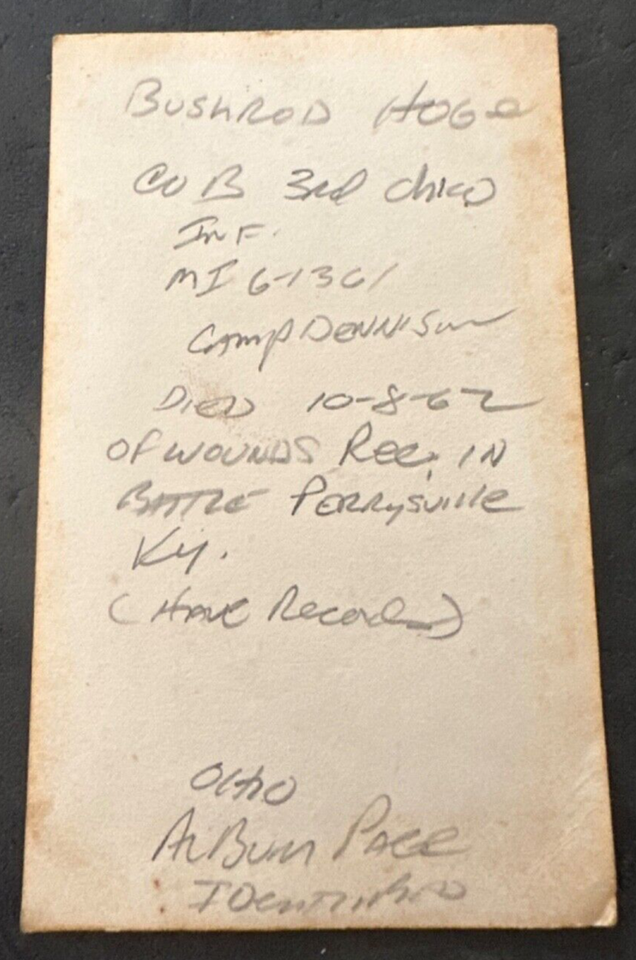 BUSHROD HOGE
CO B 3rd Ohio
INF.
MI 6-13 61
CAMP DENNISON
DIED 10-8-62
OF WOUNDS REC. IN
BATTLE PERRYSVILLE
KY.
(HAVE Records)
OHIO
ALBUM PAGE
IDENTIFIED